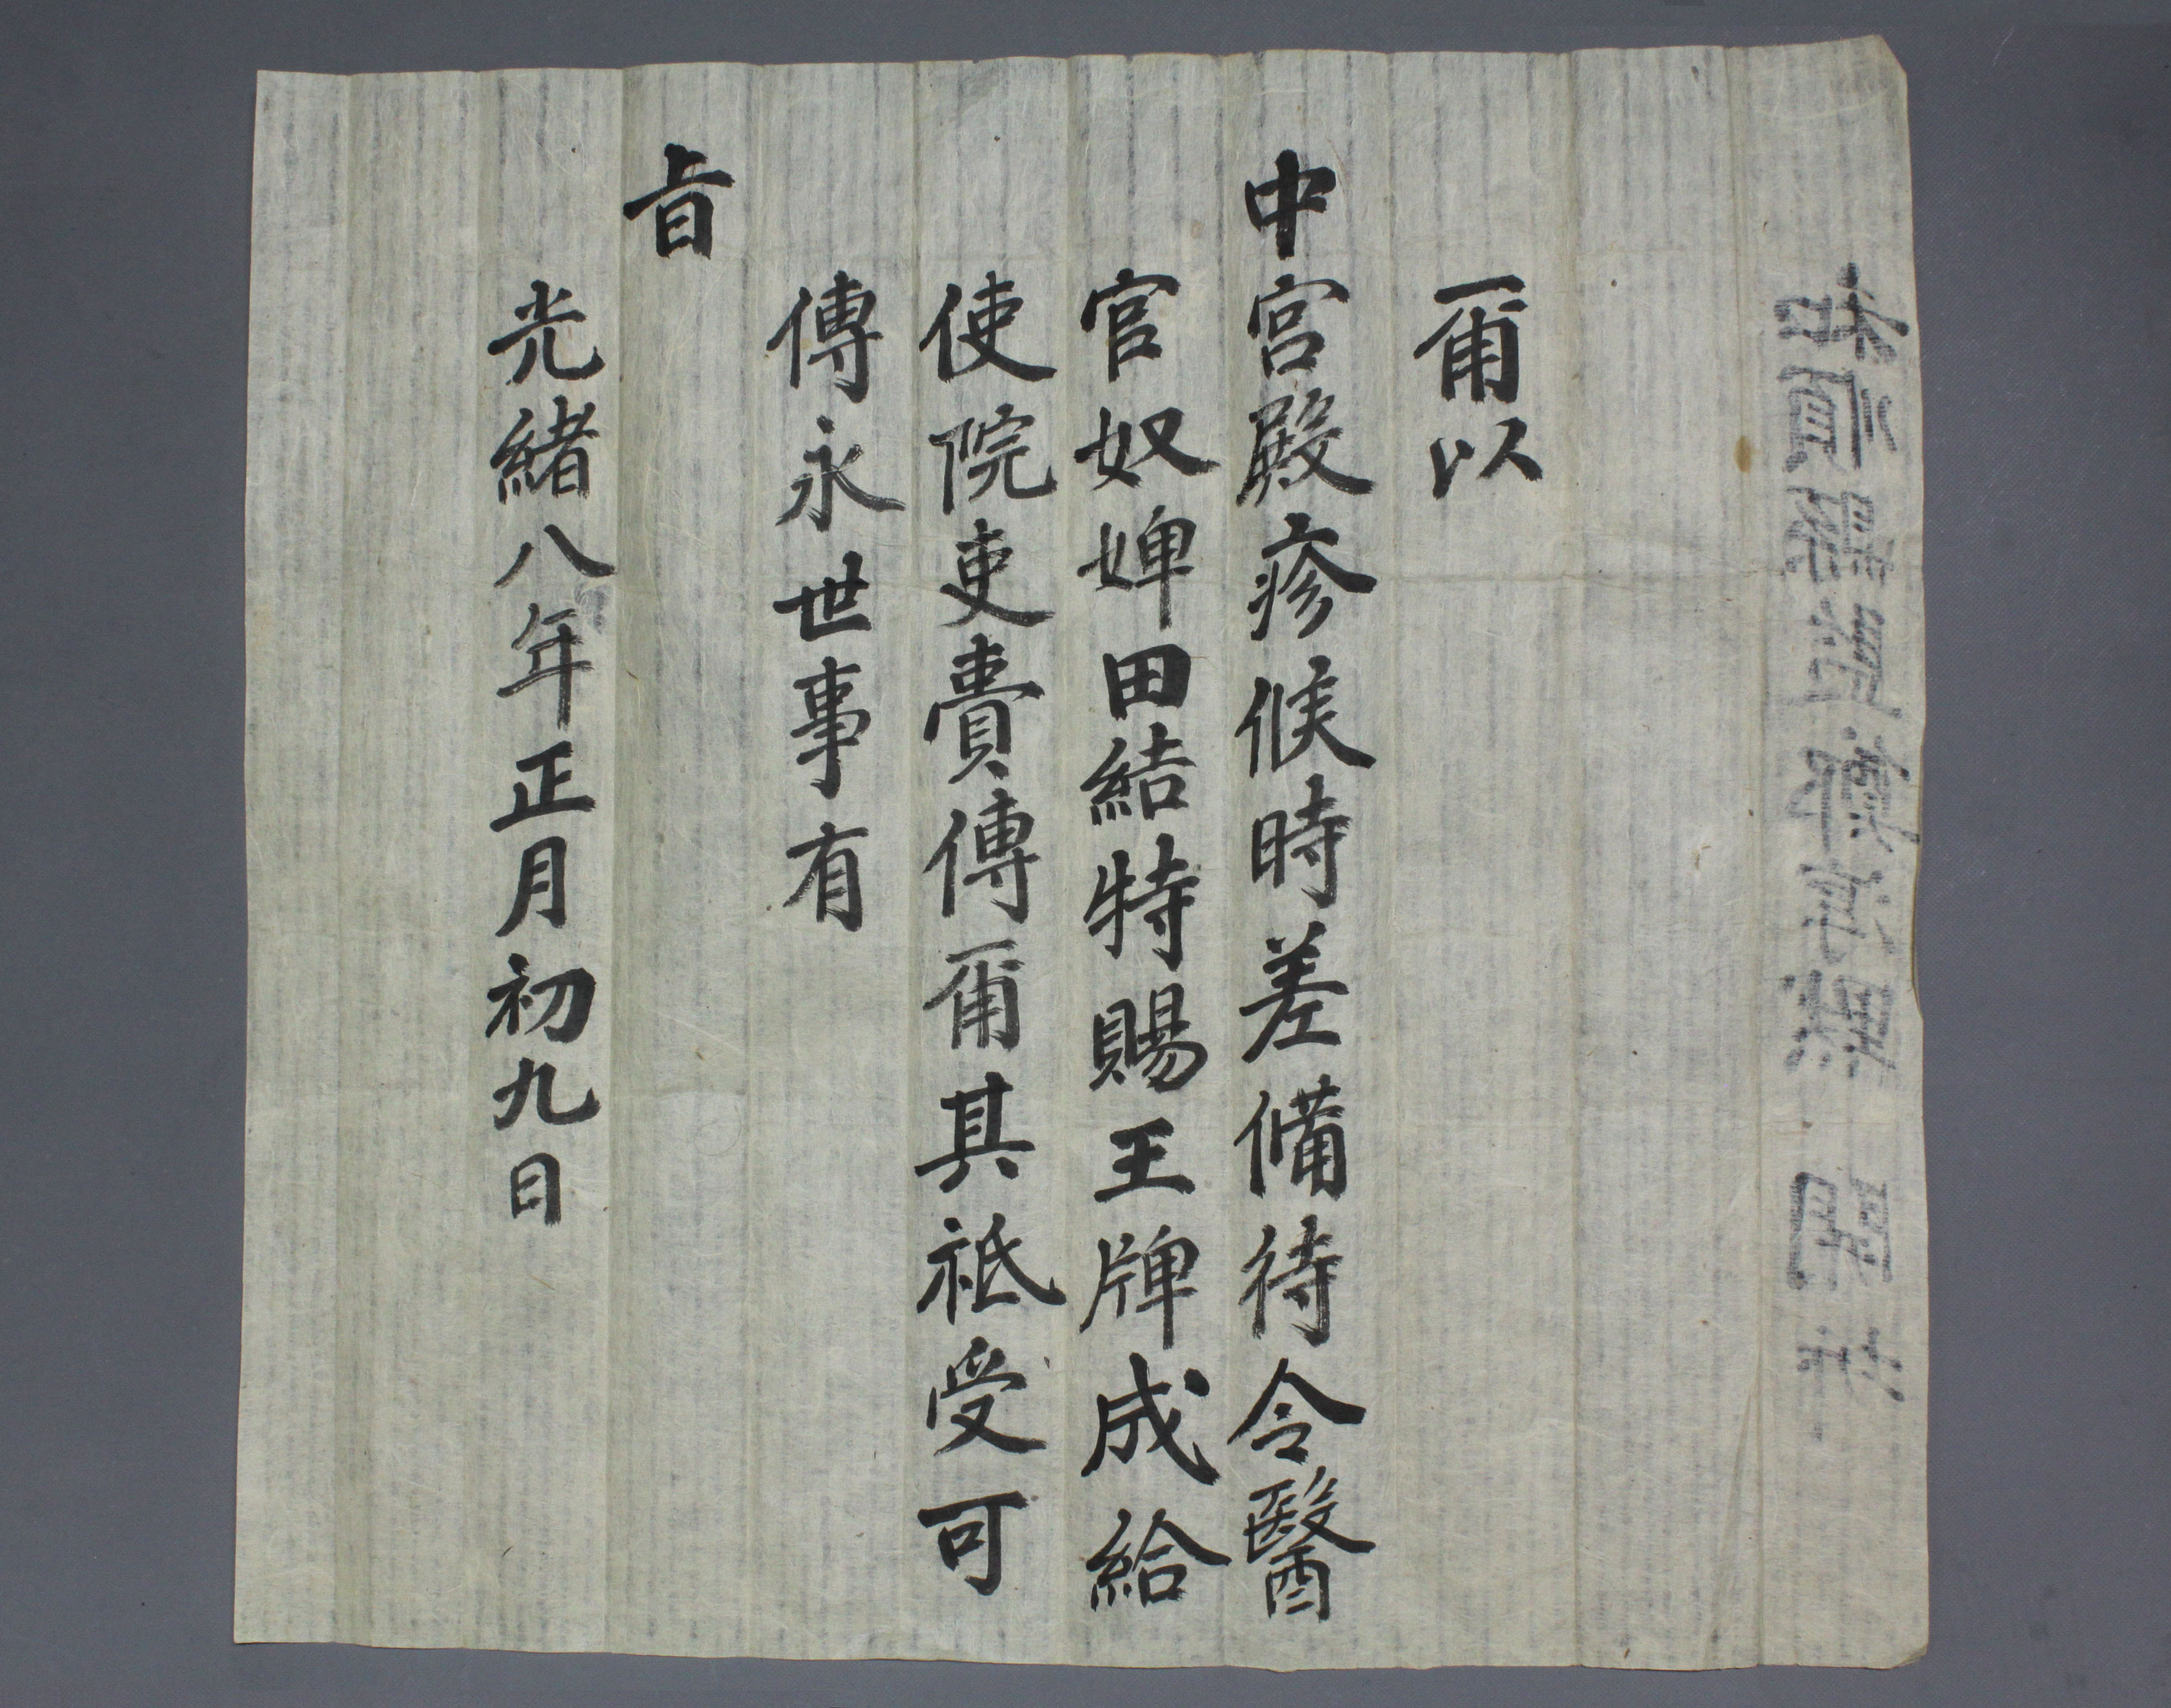 和順縣監鄭 開坼
爾以
中宮殿疹候時差備待令醫
官奴婢田結特賜王牌成給
使院吏賷傳爾其祗受可
傳永世事有
旨
光緒八年正月初九日